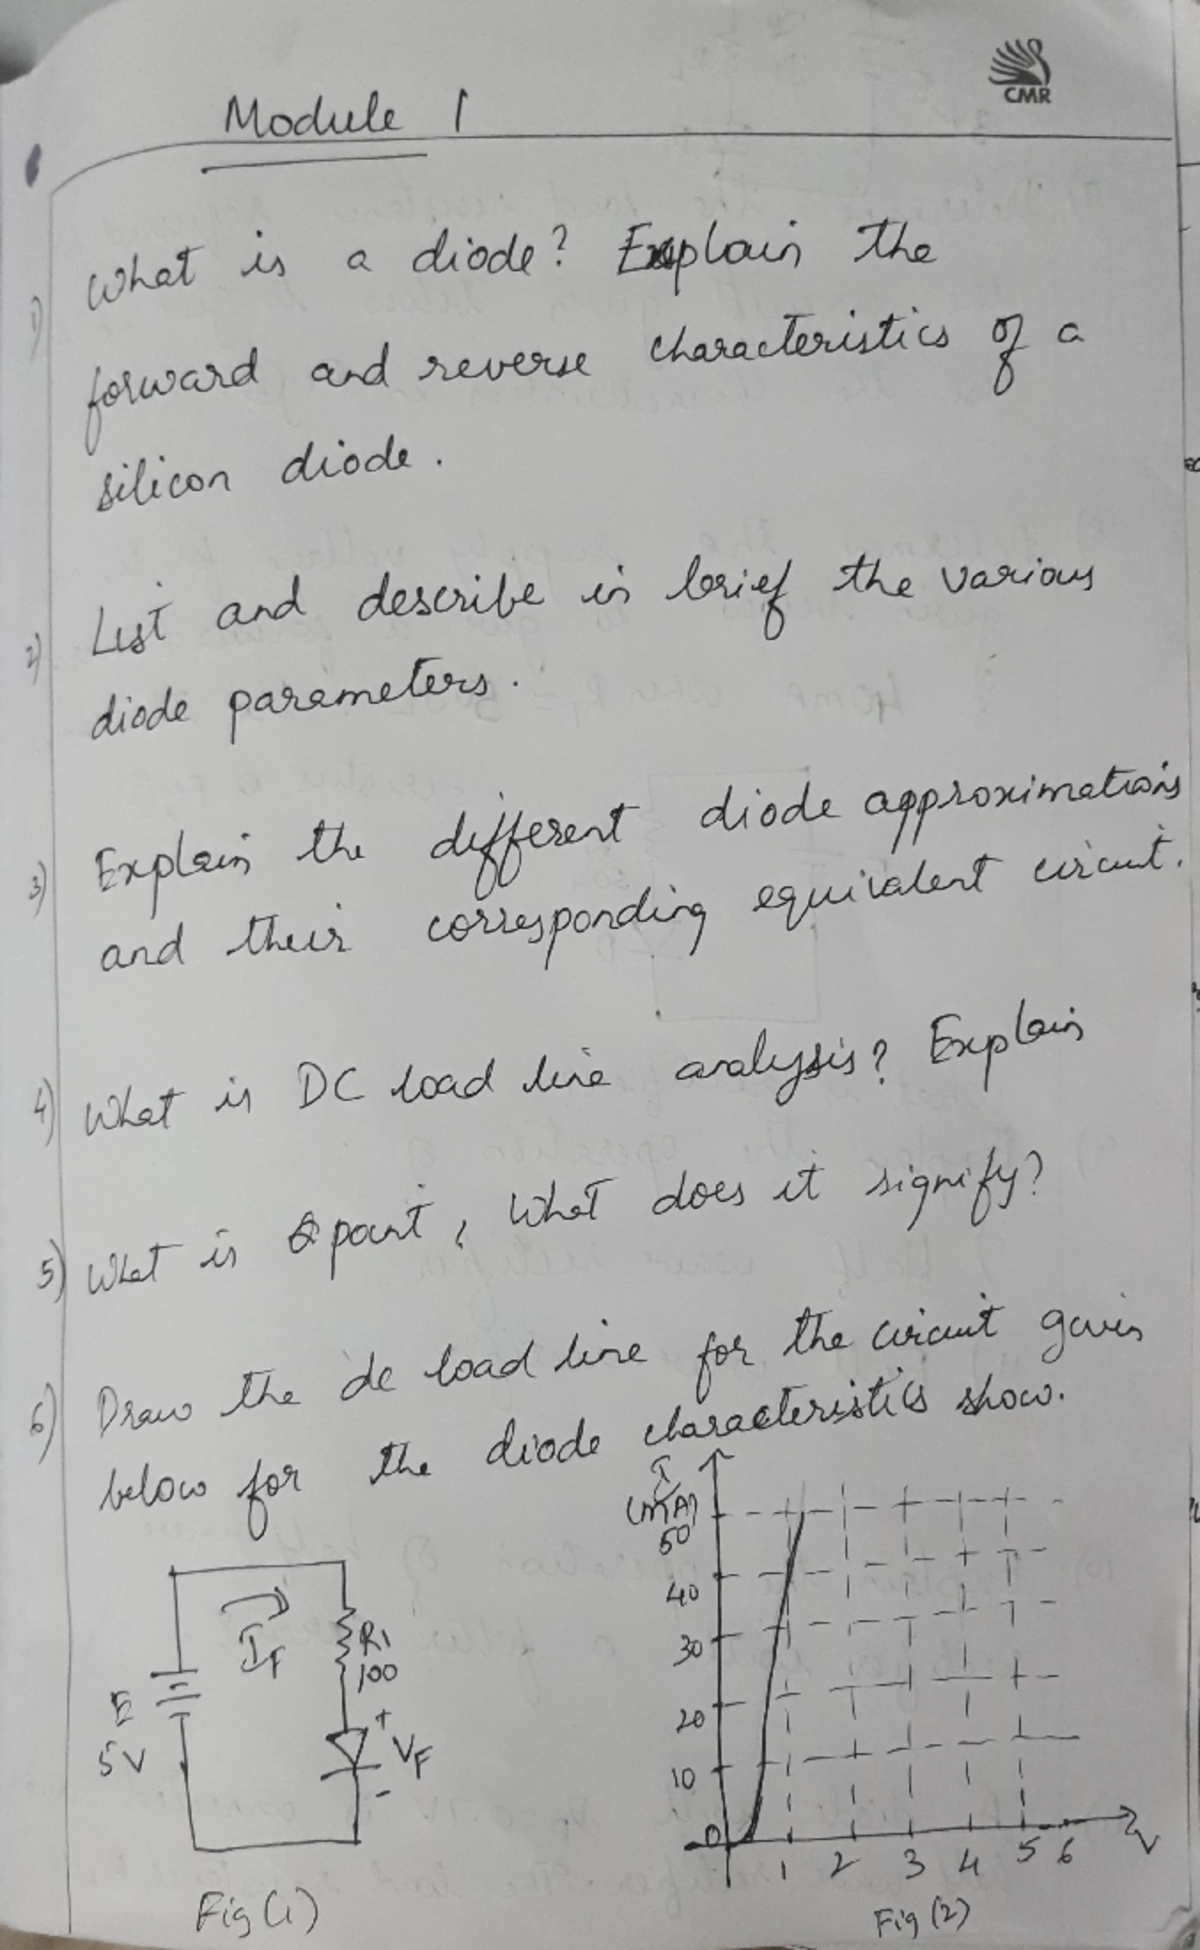 CMR
Module 1
1) What is a diode? Explain the
forward and reverse characteristics of a
silicon diode.
2) List and describe in brief the various
diode parameters.
3) Explain the different diode approximations
and their corresponding equivalent circuit.
4) What is DC load line analysis? Explain
5) What is Q point, What does it signify?
6) Draw the dc load line for the circuit given
below for the diode characteristics show.
I
(mA)
50
40
30
20
10
0
1 2 3 4 5 6
V
Fig (2)
IF
R1
100
E
5V
+
VF
-
Fig (1)